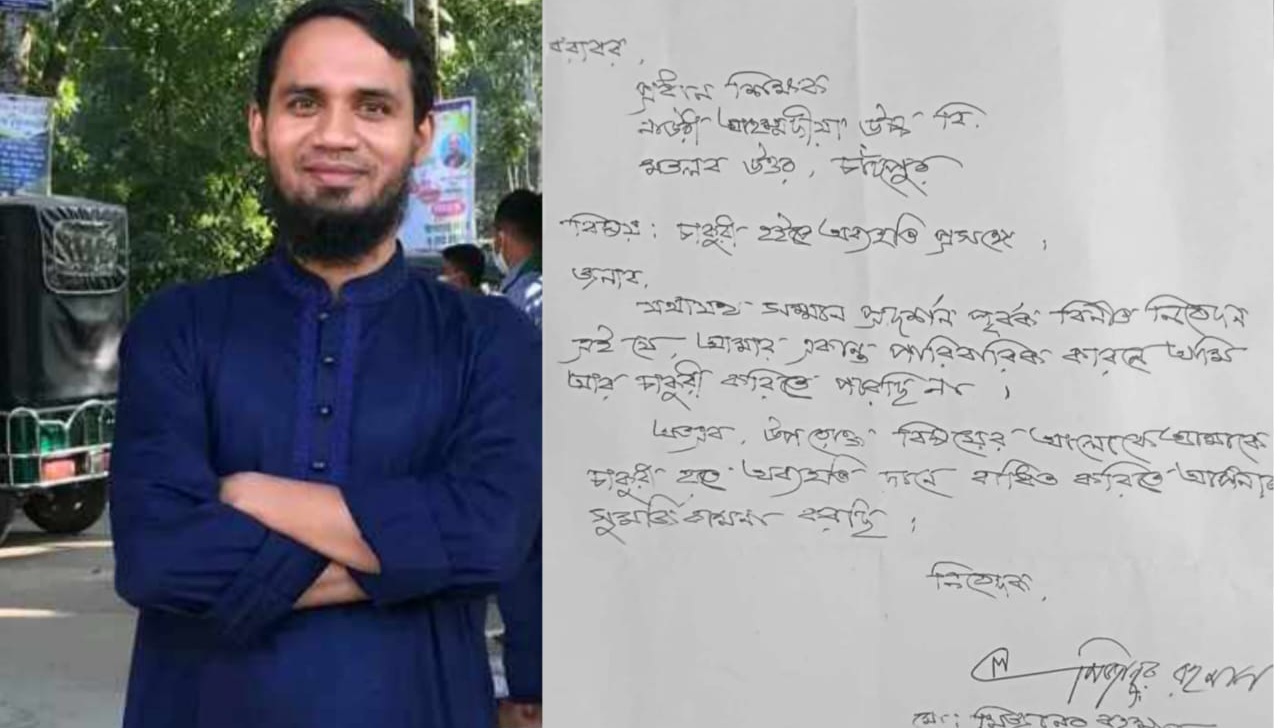 বরাবর,
প্রধান শিক্ষক
নাউরী আহম্মদীয়া উচ্চ বি.
মতলব উত্তর, চাঁদপুর
বিষয়: চাকুরী হইতে অব্যহতি প্রসঙ্গে ।
জনাব,
যথাযথ সম্মান প্রদর্শন পূর্বক বিনীত নিবেদন
এই যে, আমার একান্ত পারিবারিক কারনে আমি
আর চাকুরী করিতে পারছি না ।
অতএব, উপরোক্ত বিষয়ের আলোকে আমাকে
চাকুরী হতে অব্যহতি দানে বাধিত করিতে আপনার
সুমর্জি কামনা করছি ।
নিবেদক,
মিজানুর রহমান
মো: মিজানুর রহমান